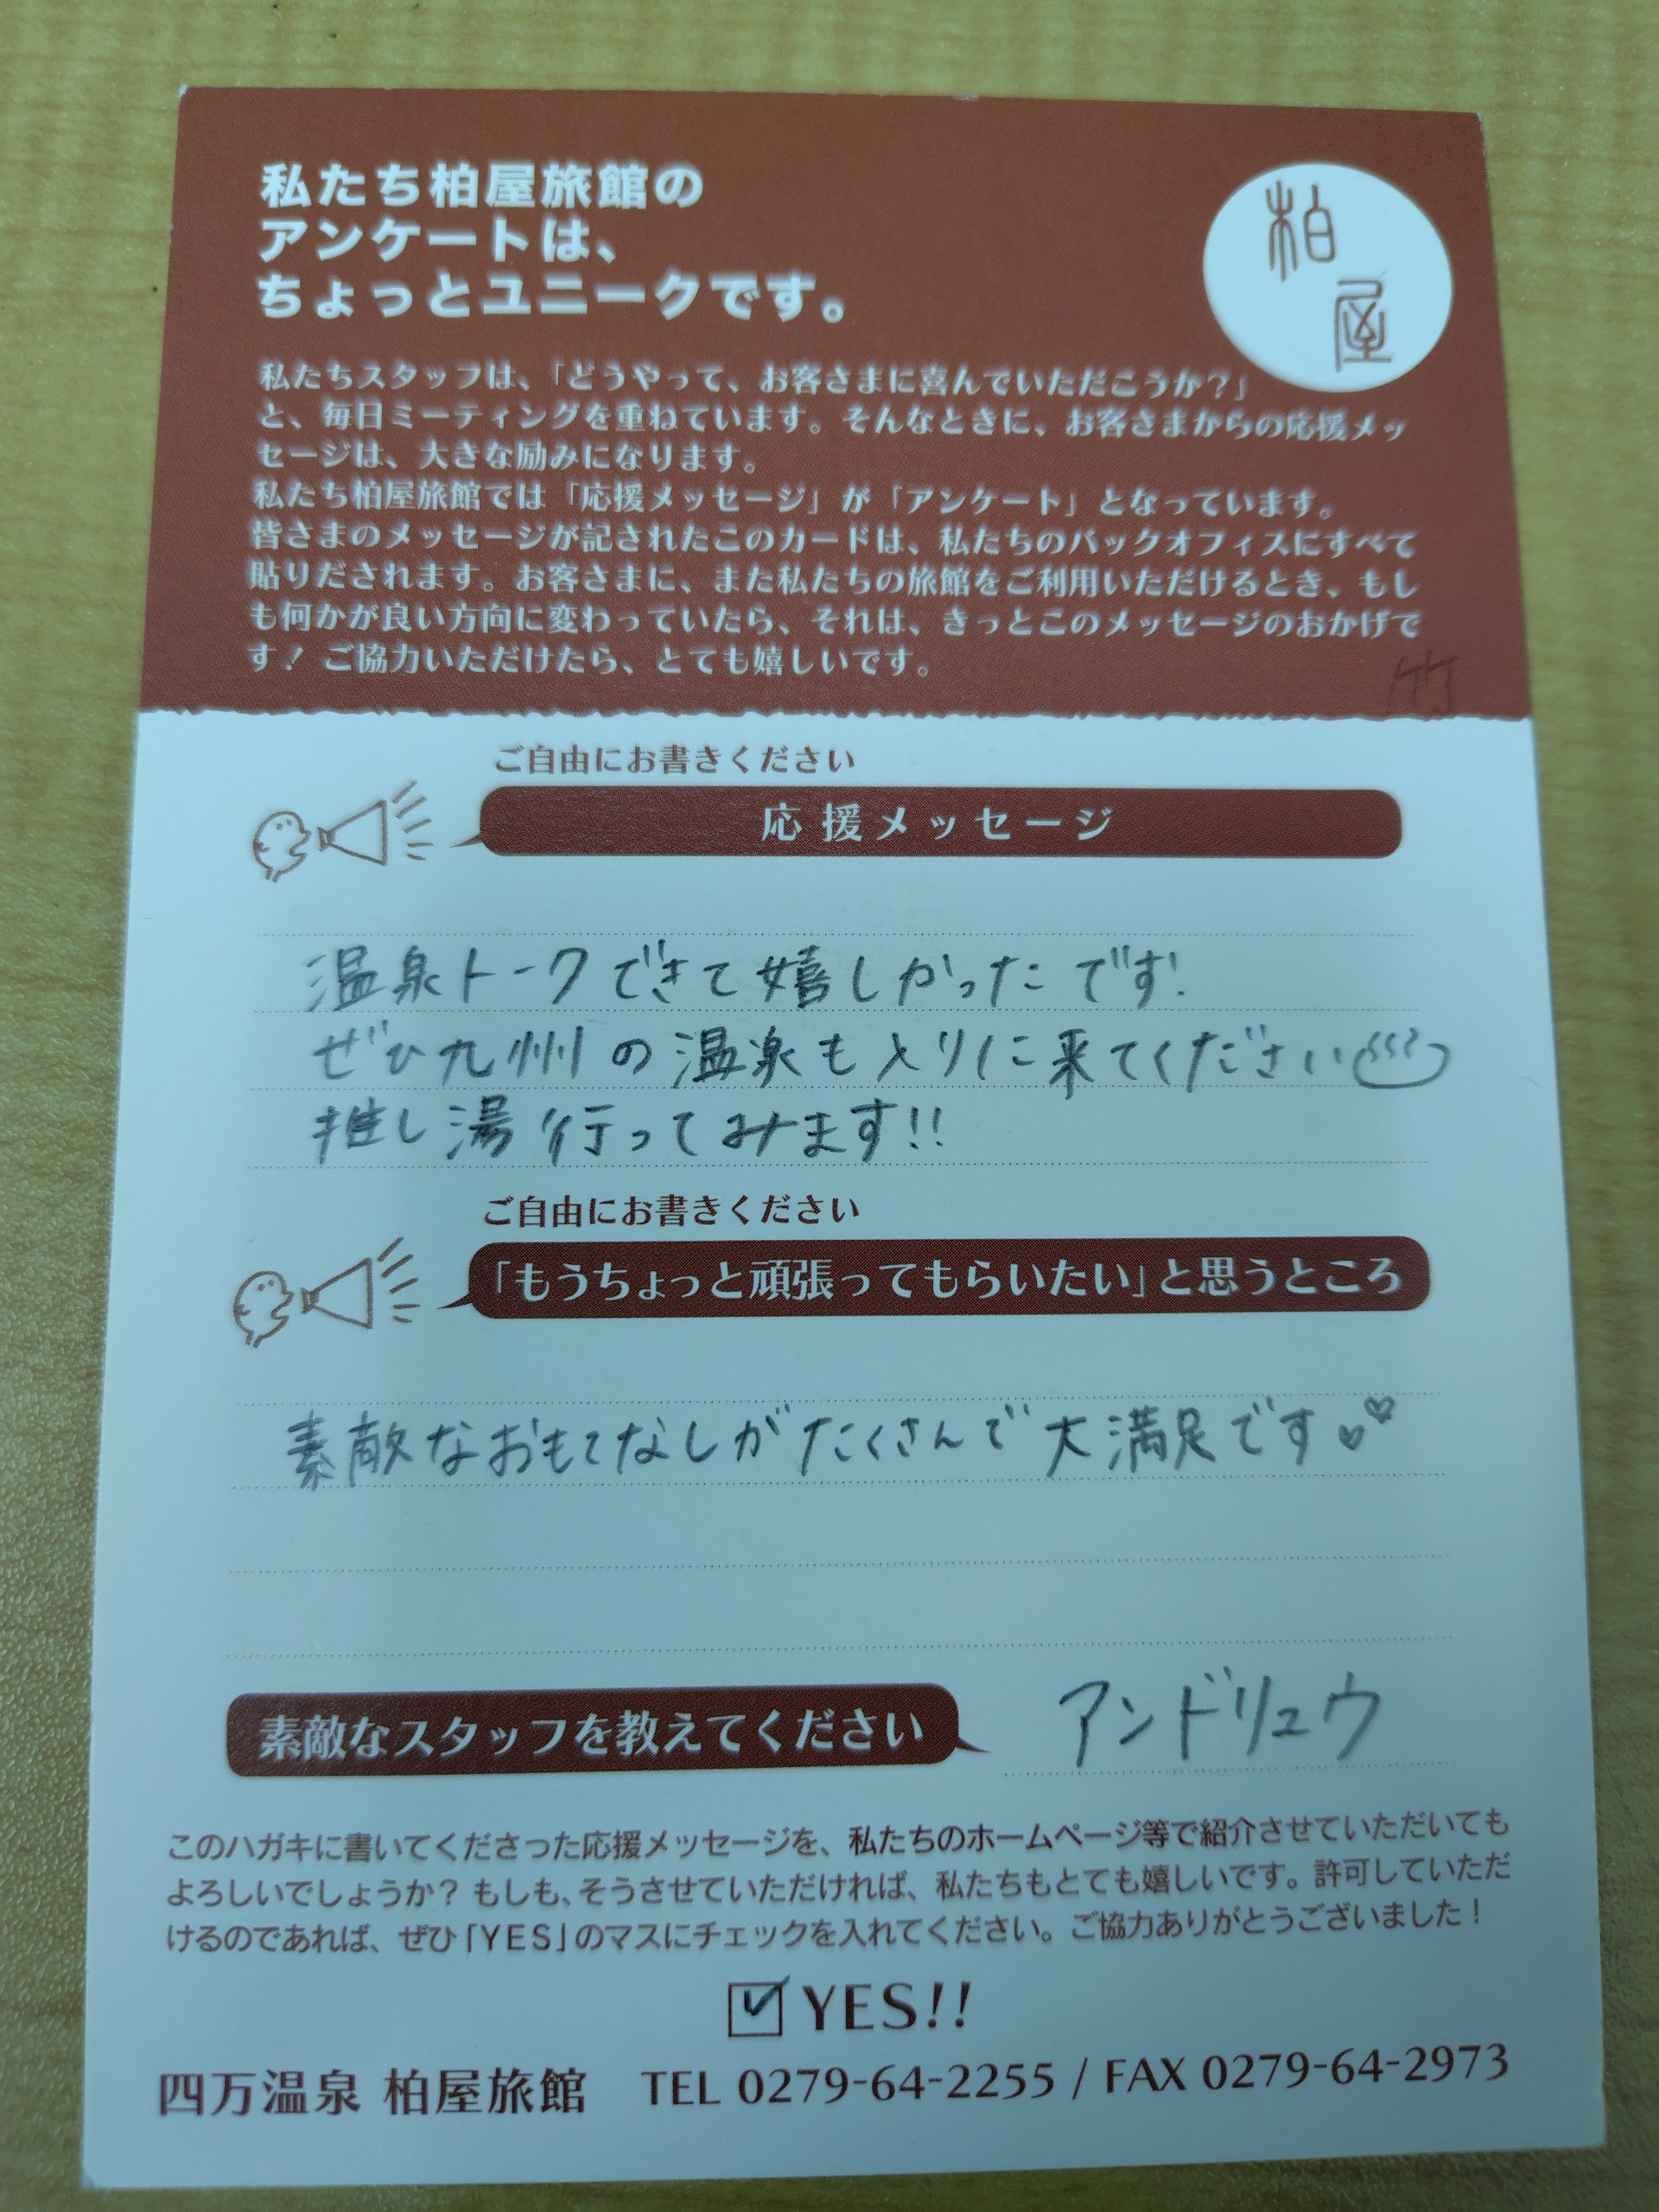 私たち柏屋旅館の
アンケートは、
ちょっとユニークです。
柏
屋
私たちスタッフは、「どうやって、お客さまに喜んでいただこうか?」
と、毎日ミーティングを重ねています。そんなときに、お客さまからの応援メッ
セージは、大きな励みになります。
私たち柏屋旅館では「応援メッセージ」が「アンケート」となっています。
皆さまのメッセージが記されたこのカードは、私たちのバックオフィスにすべて
貼りだされます。お客さまに、また私たちの旅館をご利用いただけるとき、もし
も何かが良い方向に変わっていたら、それは、きっとこのメッセージのおかげで
す! ご協力いただけたら、とても嬉しいです。
竹
ご自由にお書きください
応援メッセージ
温泉トークできて嬉しかったです!
ぜひ九州の温泉も入りに来てください
推し湯行ってみます!!
ご自由にお書きください
「もうちょっと頑張ってもらいたい」と思うところ
素敵なおもてなしがたくさんで大満足です
素敵なスタッフを教えてください アンドリュウ
このハガキに書いてくださった応援メッセージを、私たちのホームページ等で紹介させていただいても
よろしいでしょうか? もしも、そうさせていただければ、私たちもとても嬉しいです。許可していただ
けるのであれば、ぜひ「YES」のマスにチェックを入れてください。ご協力ありがとうございました!
YES!!
四万温泉 柏屋旅館 TEL 0279-64-2255 / FAX 0279-64-2973